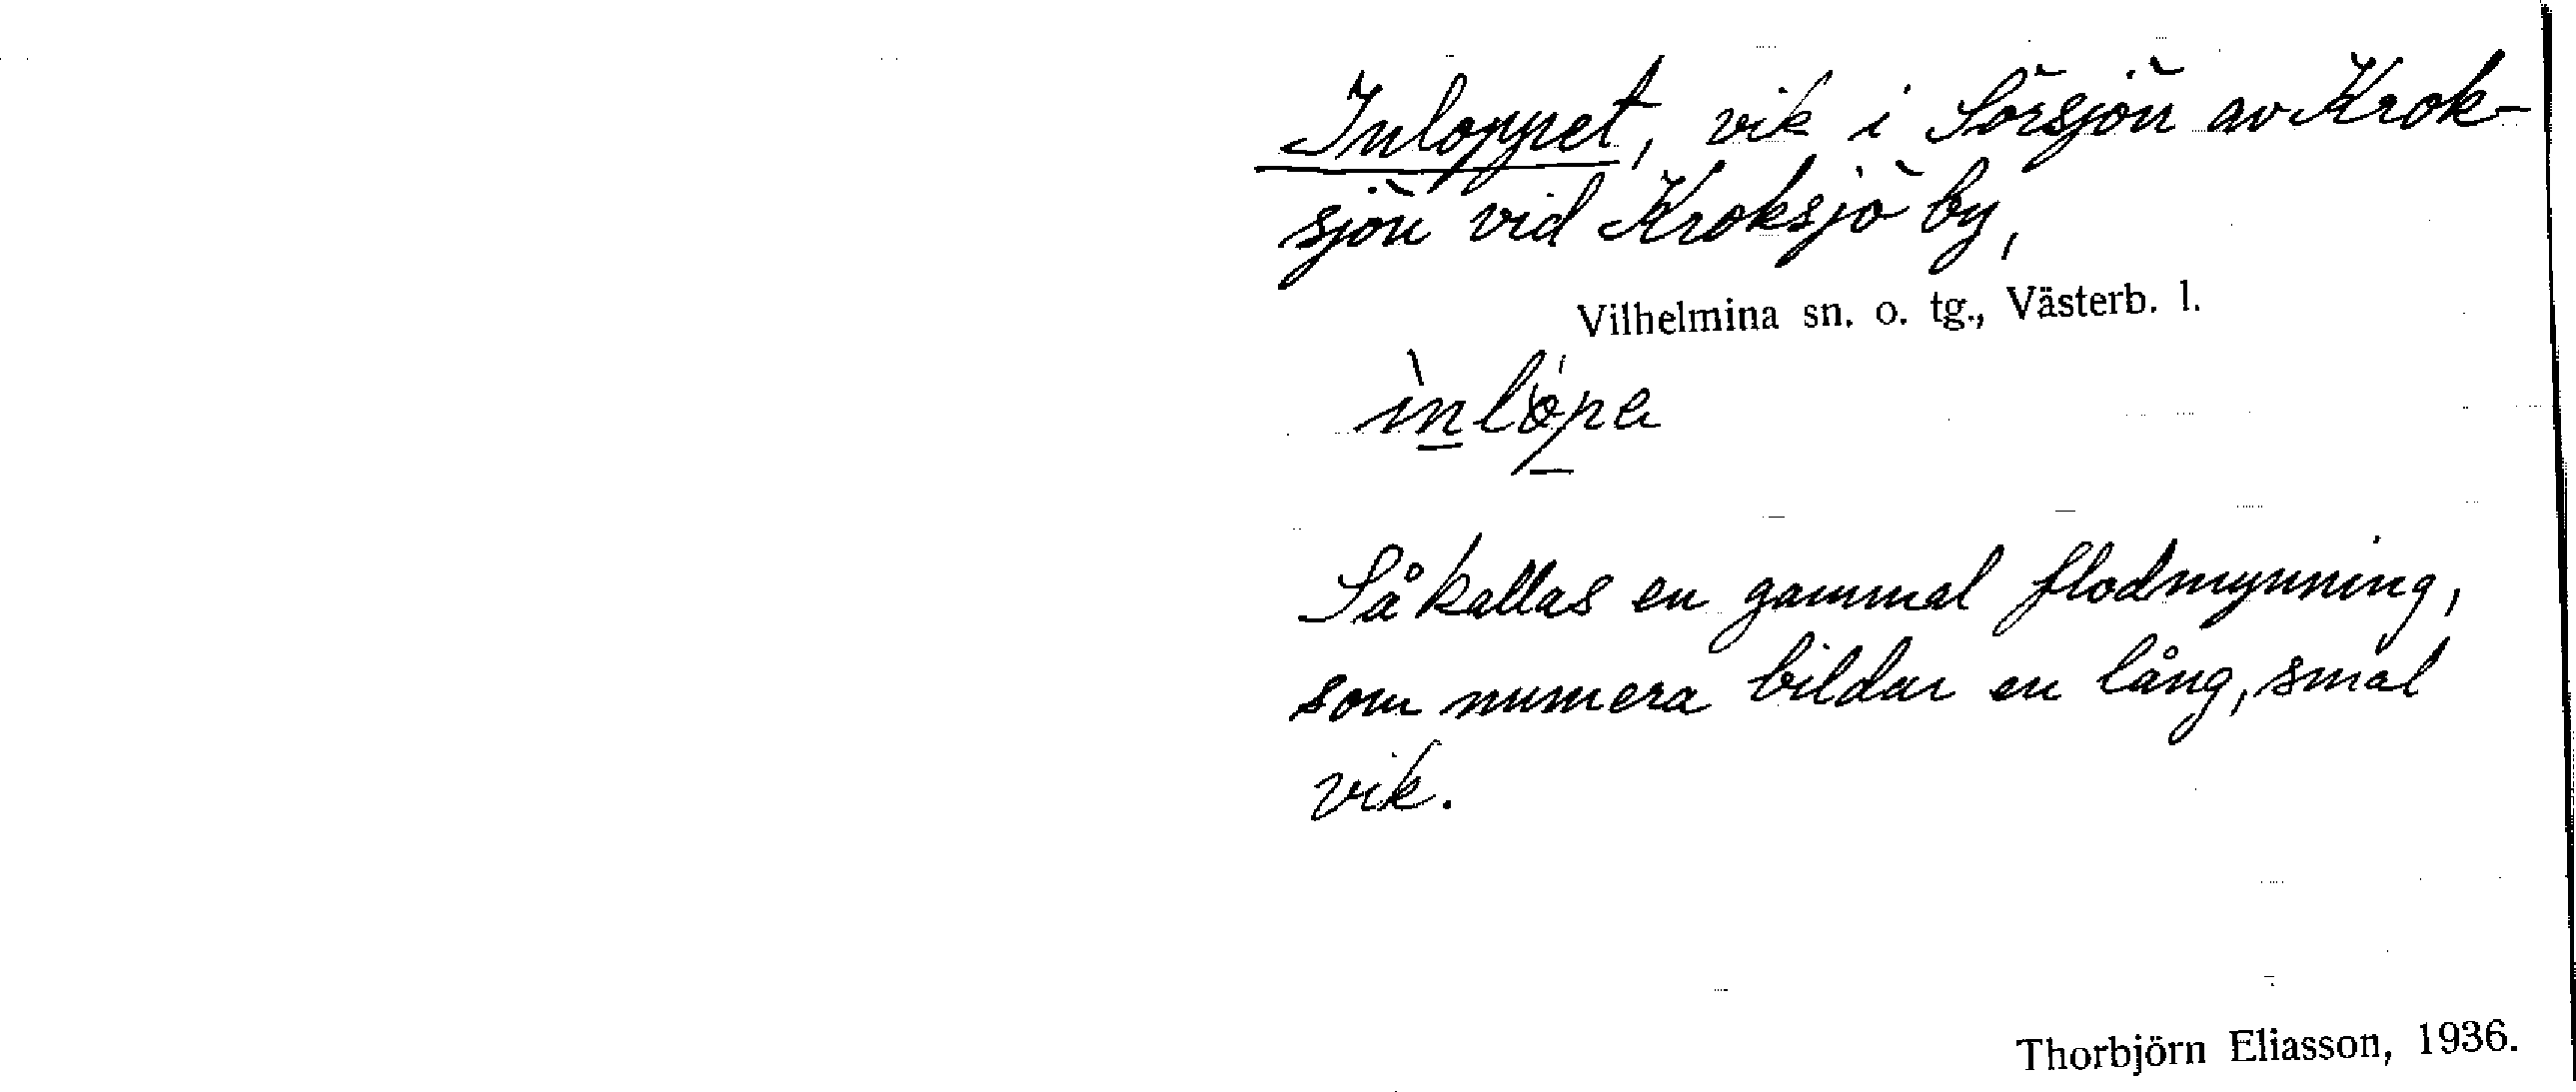 Inloppet, vik i Sörsjön av Krok-
sjön vid Kroksjö by,
Vilhelmina sn. o. tg., Västerb. l.
Så kallas en gammal flodmynning,
som numera bildar en lång, smal
vik.
Thorbjörn Eliasson, 1936.